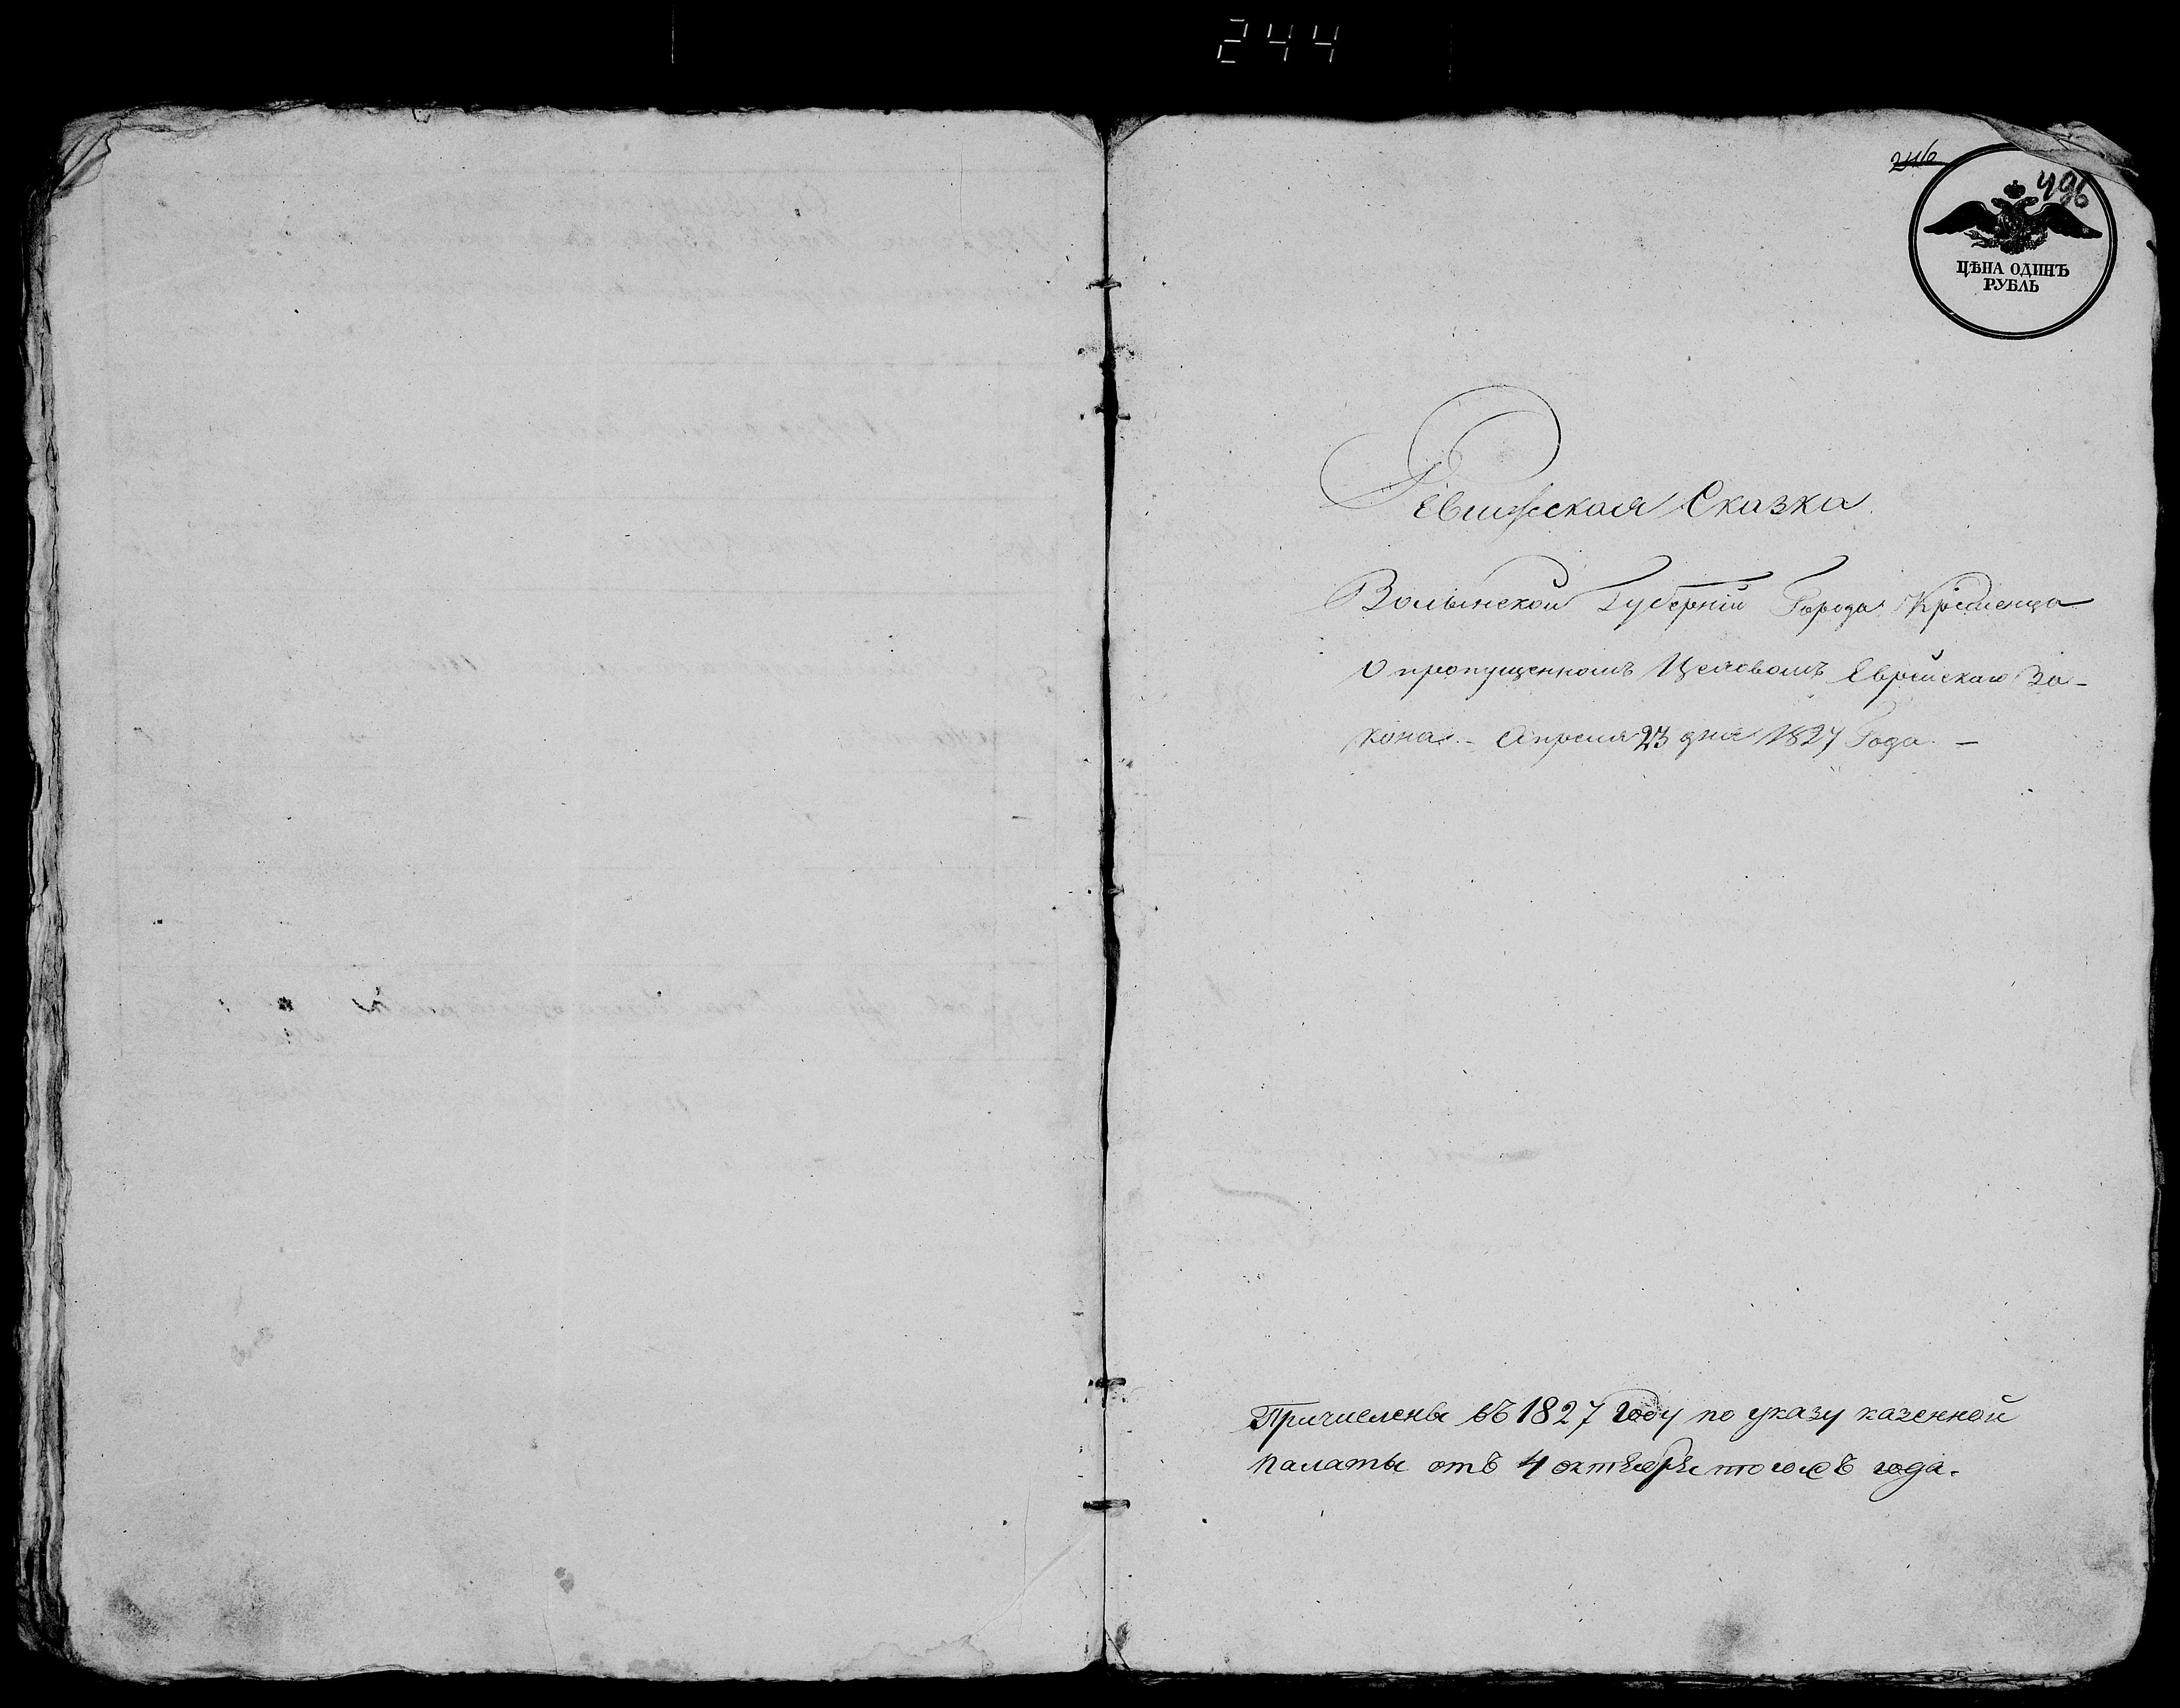 244
246
496
ЦѢНА ОДИНЪ
РУБЛЬ
Ревижская Сказка
Волынской Губерніи Города Кременца
О пропущенномъ Целовомъ Еврейскаго За-
кона. - Апреля 23 дня 1827 Года. -
Причислены въ 1827 году по указу казенной
палаты отъ 4 октября тогожъ года.